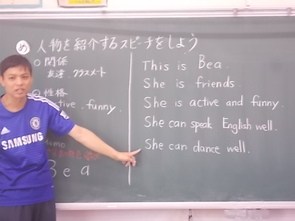 め 人物を紹介するスピーチをしよう
○関係
友達 クラスメート
○性格
active. funny.
Bea
This is Bea.
She is friends
She is active and funny.
She can speak English well.
She can dance well.
SAMSUNG